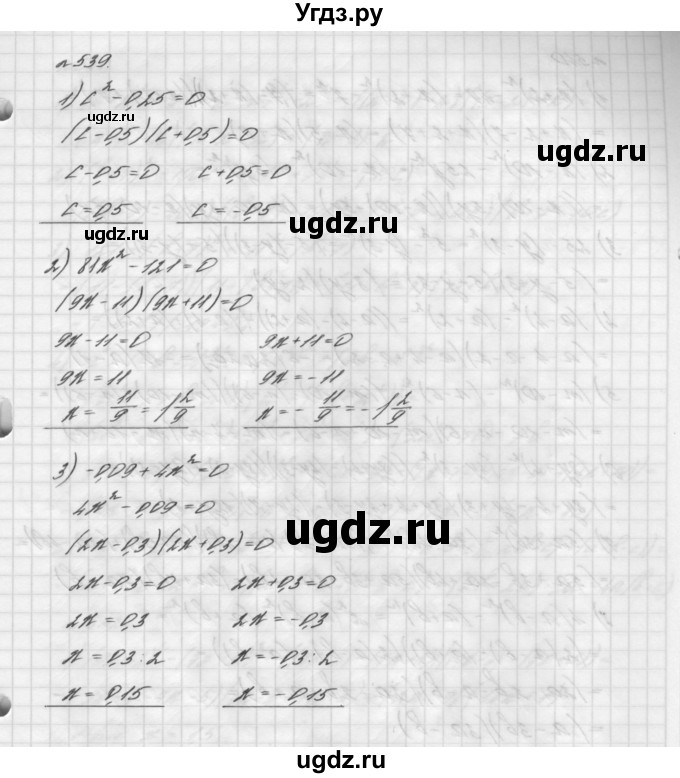 Угдз.ру
№539.
1) c² - 0,25 = 0
ugdz.ru
(c - 0,5)(c + 0,5) = 0
ugdz.ru
c - 0,5 = 0 c + 0,5 = 0
c = 0,5 c = -0,5
ugdz.ru
ugdz.ru
2) 81x² - 121 = 0
(9x - 11)(9x + 11) = 0
9x - 11 = 0 9x + 11 = 0
ugdz.ru
9x = 11 9x = -11
x = 11/9 = 1 2/9 x = - 11/9 = -1 2/9
3) -0,09 + 4x² = 0
4x² - 0,09 = 0
ugdz.ru
(2x - 0,3)(2x + 0,3) = 0
2x - 0,3 = 0 2x + 0,3 = 0
2x = 0,3 2x = -0,3
x = 0,3 : 2 x = -0,3 : 2
x = 0,15 x = -0,15
ugdz.ru
ugdz.ru
Угдз.ру